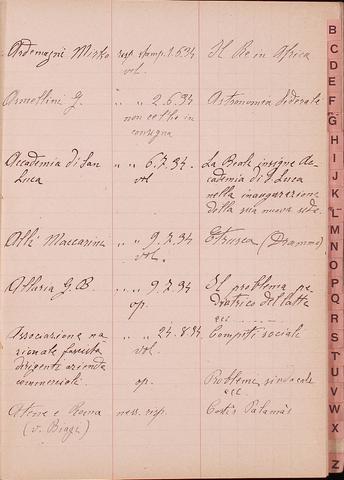 Ardemagni Mirko risp. stamp. 1.6.34 Il Re in Africa
vol.
Armellini G. " " 2.6.34 Astronomia siderale
non ce l'ho in
consegna
Accademia di San " " 6.7.34 La Reale insigne Ac-
Luca vol. cademia di S. Luca
nella inaugurazione
della sua nuova sede
Alli Maccarini " " 9.7.34 Etrusca (Dramma)
vol.
Allaria G. B. " " 9.7.34 Il problema pe-
op. diatrico del latte
ecc
Associazione na- " " 24.8.34 Compiti sociali
zionale fascista vol.
dirigenti aziende
commerciali op. Problemi sindacali
ecc
Atene e Roma ness. risp. Costis Palamàs
(v. Biagi)
B
C
D
E
F
G
H
I
J
K
L
M
N
O
P
Q
R
S
T
U
V
W
X
Z